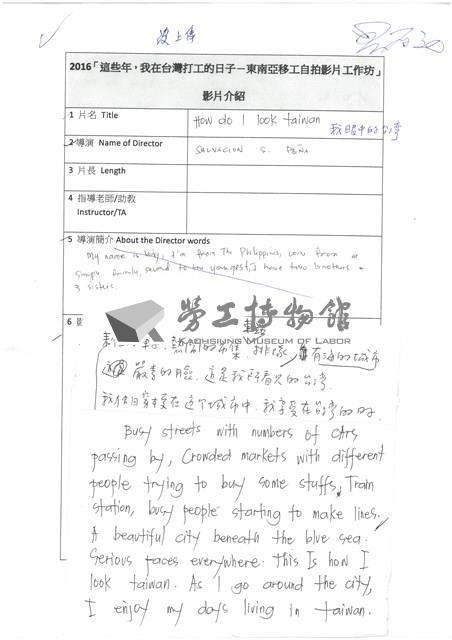 沒上傳
2016「這些年，我在台灣打工的日子－東南亞移工自拍影片工作坊」
影片介紹
1 片名 Title
How do I look taiwan
我眼中的台灣
2 導演 Name of Director
SALVACION S. PEÑA
3 片長 Length
4 指導老師/助教
Instructor/TA
5 導演簡介 About the Director words
My name is I'm from The Philippines, came from a
simple family, second to the youngest, I have two brothers &
3 sisters.
6
勞工博物館
KAOHSIUNG MUSEUM OF LABOR
車子、熱鬧的市集、排隊、有海的城市
嚴肅的臉、這是我所看見的台灣
在這個城市中、我享受在台灣的時
Busy streets with numbers of cars
passing by, Crowded markets with different
people trying to buy some stuffs, Train
station, busy people starting to make lines.
A beautiful city beneath the blue sea.
Serious faces everywhere. This Is how I
look taiwan. As I go around the city,
I enjoy my days living in taiwan.